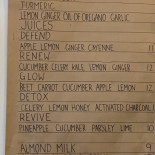 TURMERIC
LEMON GINGER OIL OF OREGANO GARLIC
JUICES
DEFEND
APPLE LEMON GINGER CAYENNE 11
RENEW
CUCUMBER CELERY KALE LEMON GINGER
GLOW
BEET CARROT CUCUMBER APPLE LEMON GINGER
DETOX
CELERY LEMON HONEY ACTIVATED CHARCOAL
REVIVE
PINEAPPLE CUCUMBER PARSLEY LIME 10
ALMOND MILK 9